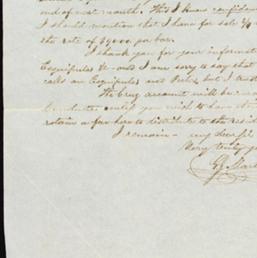 end of next month. This I know confiden
I should mention that I have for sale 2/4
the rate of $9000 per bar.
I thank you for your informat
Esquipulas &c and I am sorry to say that
calls an Esquipulas and Paris, but I trust
The Cruz account will be
unless you wish to have it
retain a few here to distribute to the resid
I remain - my dear Sir
Very truly yo